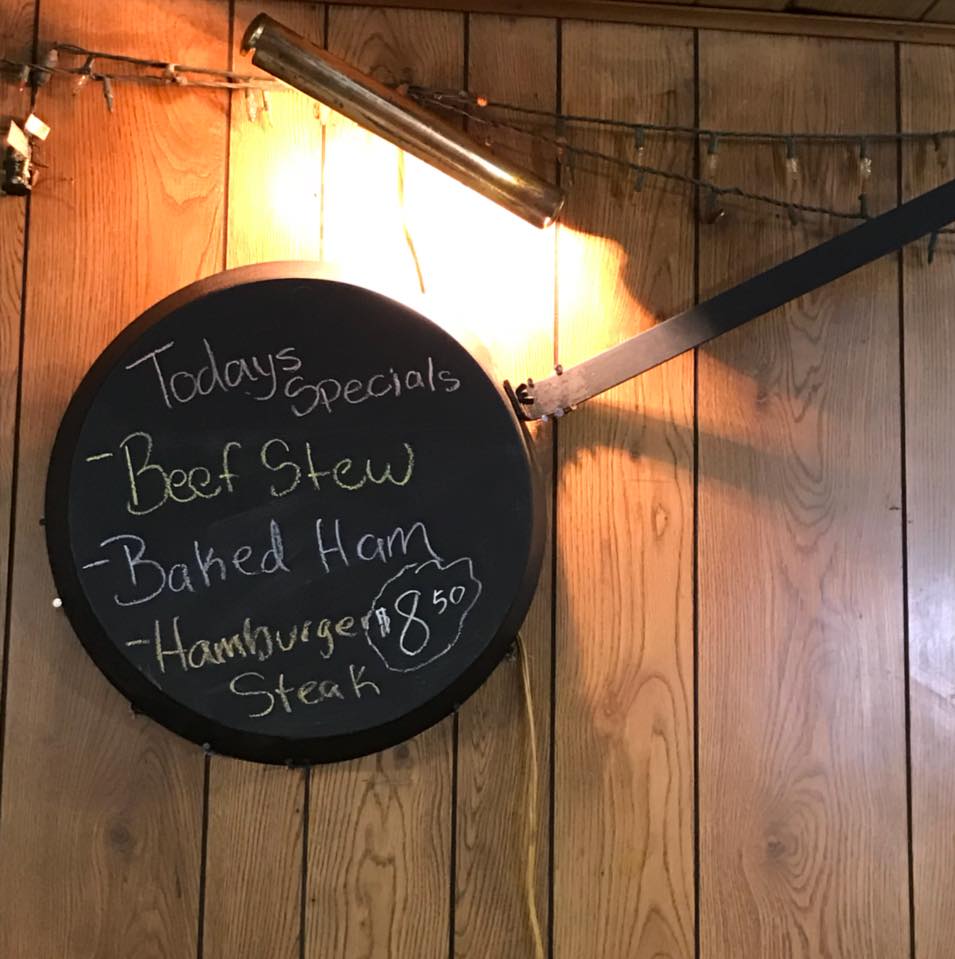 Todays
Specials
-Beef Stew
-Baked Ham
-Hamburger $8.50
Steak